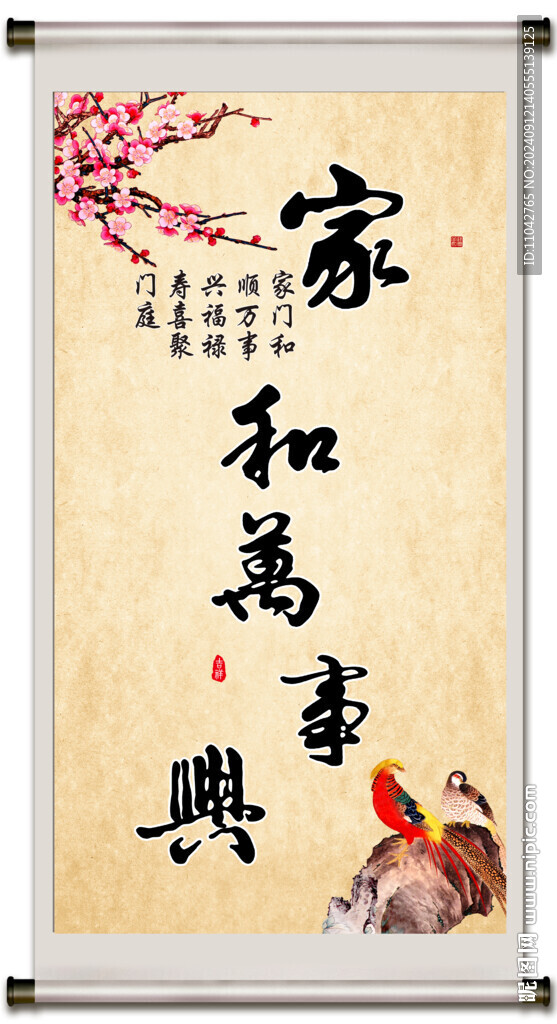 家和萬事興
家门和
顺万事
兴福禄
寿喜聚
门庭
吉祥
ID:11042765 NO:20240912140555139125
昵图网 www.nipic.com